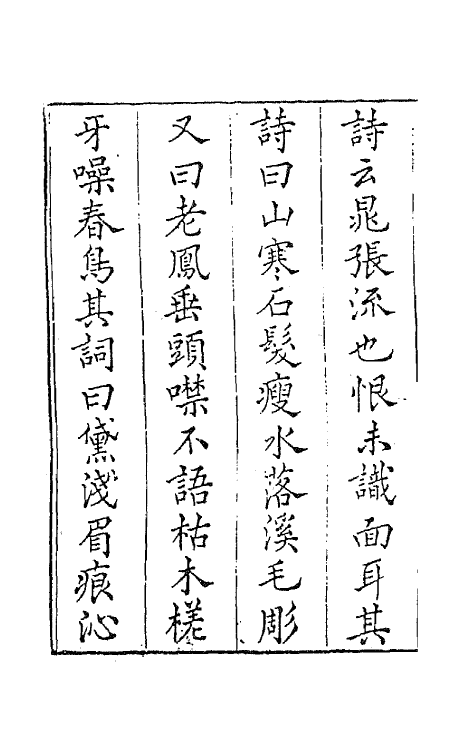 詩云晁張流也恨未識面耳其
詩曰山寒石髮瘦水落溪毛彫
又曰老鳳垂頭噤不語枯木槎
牙噪春鳥其詞曰黛淺眉痕沁